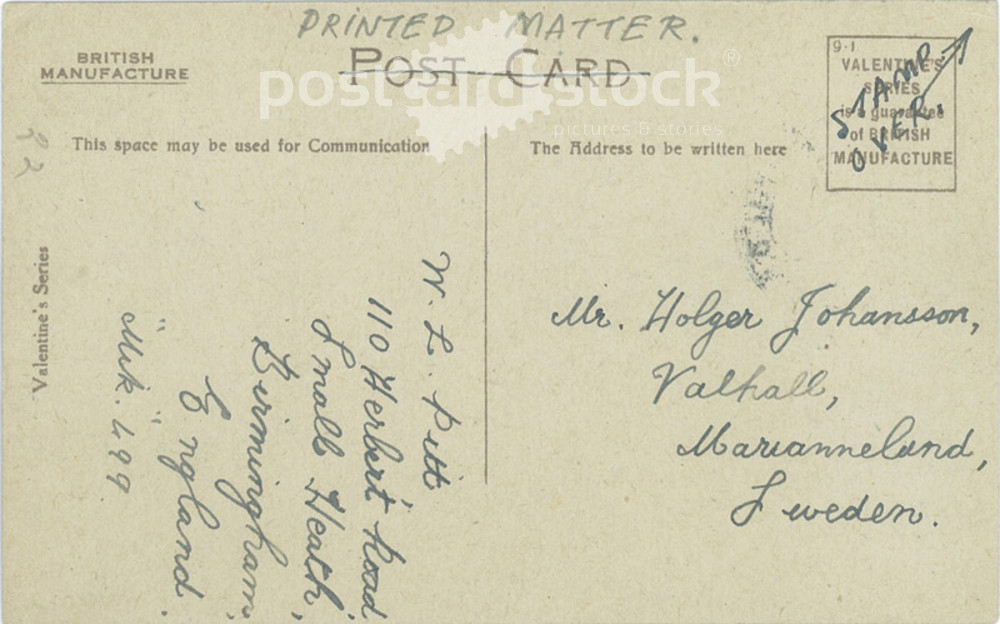 PRINTED MATTER.
BRITISH
MANUFACTURE
POST CARD
postcard stock
®
pictures & stories
9-1
VALENTINE'S
SERIES
is a guarantee
of BRITISH
MANUFACTURE
STAMP
OVER.
This space may be used for Communication
The Address to be written here
Valentine's Series
22
W. L. Pitt
110 Herbert Road
Small Heath,
Birmingham,
England.
"Mik." 499
Mr. Holger Johansson,
Valhall,
Marianneland,
Sweden.